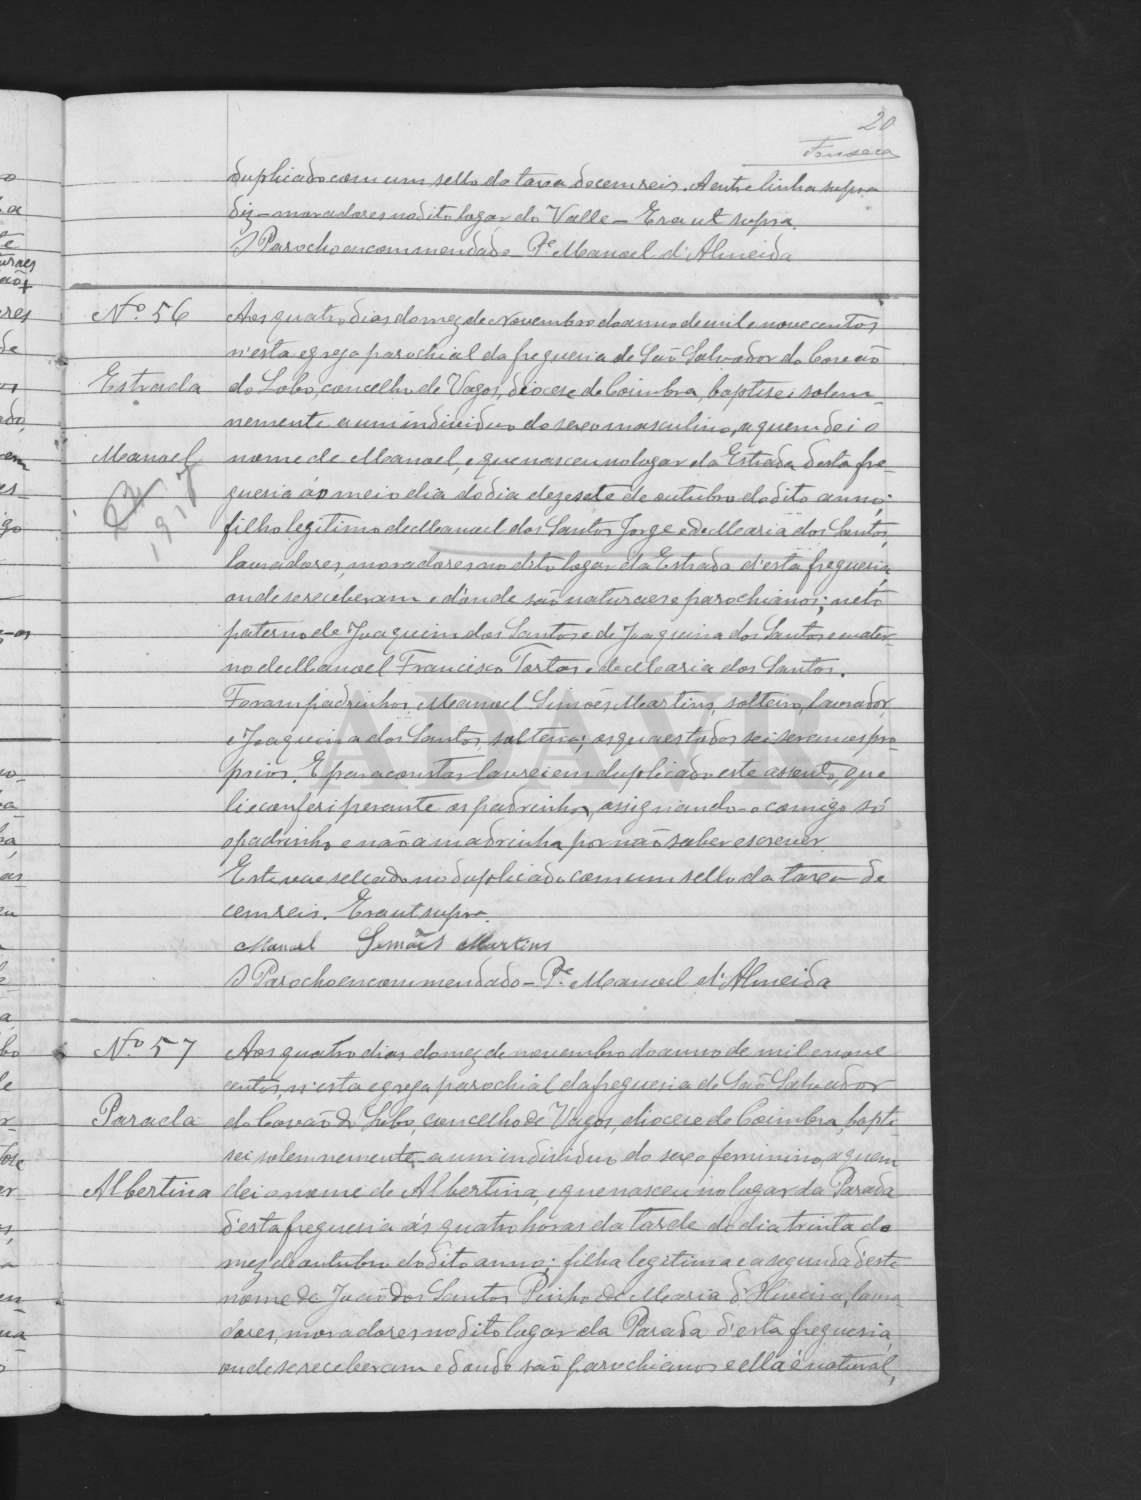 20
Fonseca
duplicado com um sello da taxa de cem reis. A entrelinha supra
diz - moradores no dito logar do Valle - Era ut supra.
O Parocho encommendado - P.e Manoel d'Almeida
N.o 56
Estrada
Manoel
1917
Aos quatro dias do mez de Novembro do anno de mil e novecentos
n'esta egreja parochial da freguesia de São Salvador do Covão
do Lobo, concelho de Vagos, diocese de Coimbra, baptisei solem-
nemente a um individuo do sexo masculino, a quem dei o
nome de Manoel, e que nasceu no logar da Estrada desta fre-
guesia ao meio dia do dia dezesete de outubro do dito anno;
filho legitimo de Manoel dos Santos Jorge e de Maria dos Santos,
lavradores, moradores no dito logar da Estrada d'esta freguesia,
onde se receberam e d'onde são naturaes e parochianos; neto
paterno de Joaquim dos Santos e de Joaquina dos Santos e mater-
no de Manoel Francisco Tortas e de Maria dos Santos.
Foram padrinhos Manoel Simões Martins, solteiro, lavrador
e Joaquina dos Santos, solteira; os quaes todos sei serem os pro-
prios. E para constar lavrei em duplicado este assento, que
li e conferi perante os padrinhos, assignando-o comigo só
o padrinho e não a madrinha por não saber escrever.
Este vae sellado no duplicado com um sello da taxa de
cem reis. Era ut supra.
Manoel Simões Martins
O Parocho encommendado - P.e Manoel d'Almeida
N.o 57
Parada
Albertina
Aos quatro dias do mez de novembro do anno de mil e nove
centos, n'esta egreja parochial da freguesia de São Salvador
do Covão do Lobo, concelho de Vagos, diocese de Coimbra, bapti-
sei solemnemente a um individuo do sexo feminino, a quem
dei o nome de Albertina, e que nasceu no logar da Parada
d'esta freguesia ás quatro horas da tarde do dia trinta do
mez de outubro do dito anno; filha legitima e a segunda d'este
nome de João dos Santos Pinho e de Maria d'Oliveira, lavra-
dores, moradores no dito logar da Parada d'esta freguesia,
onde se receberam e d'onde são parochianos e ella é natural,
ADAVR